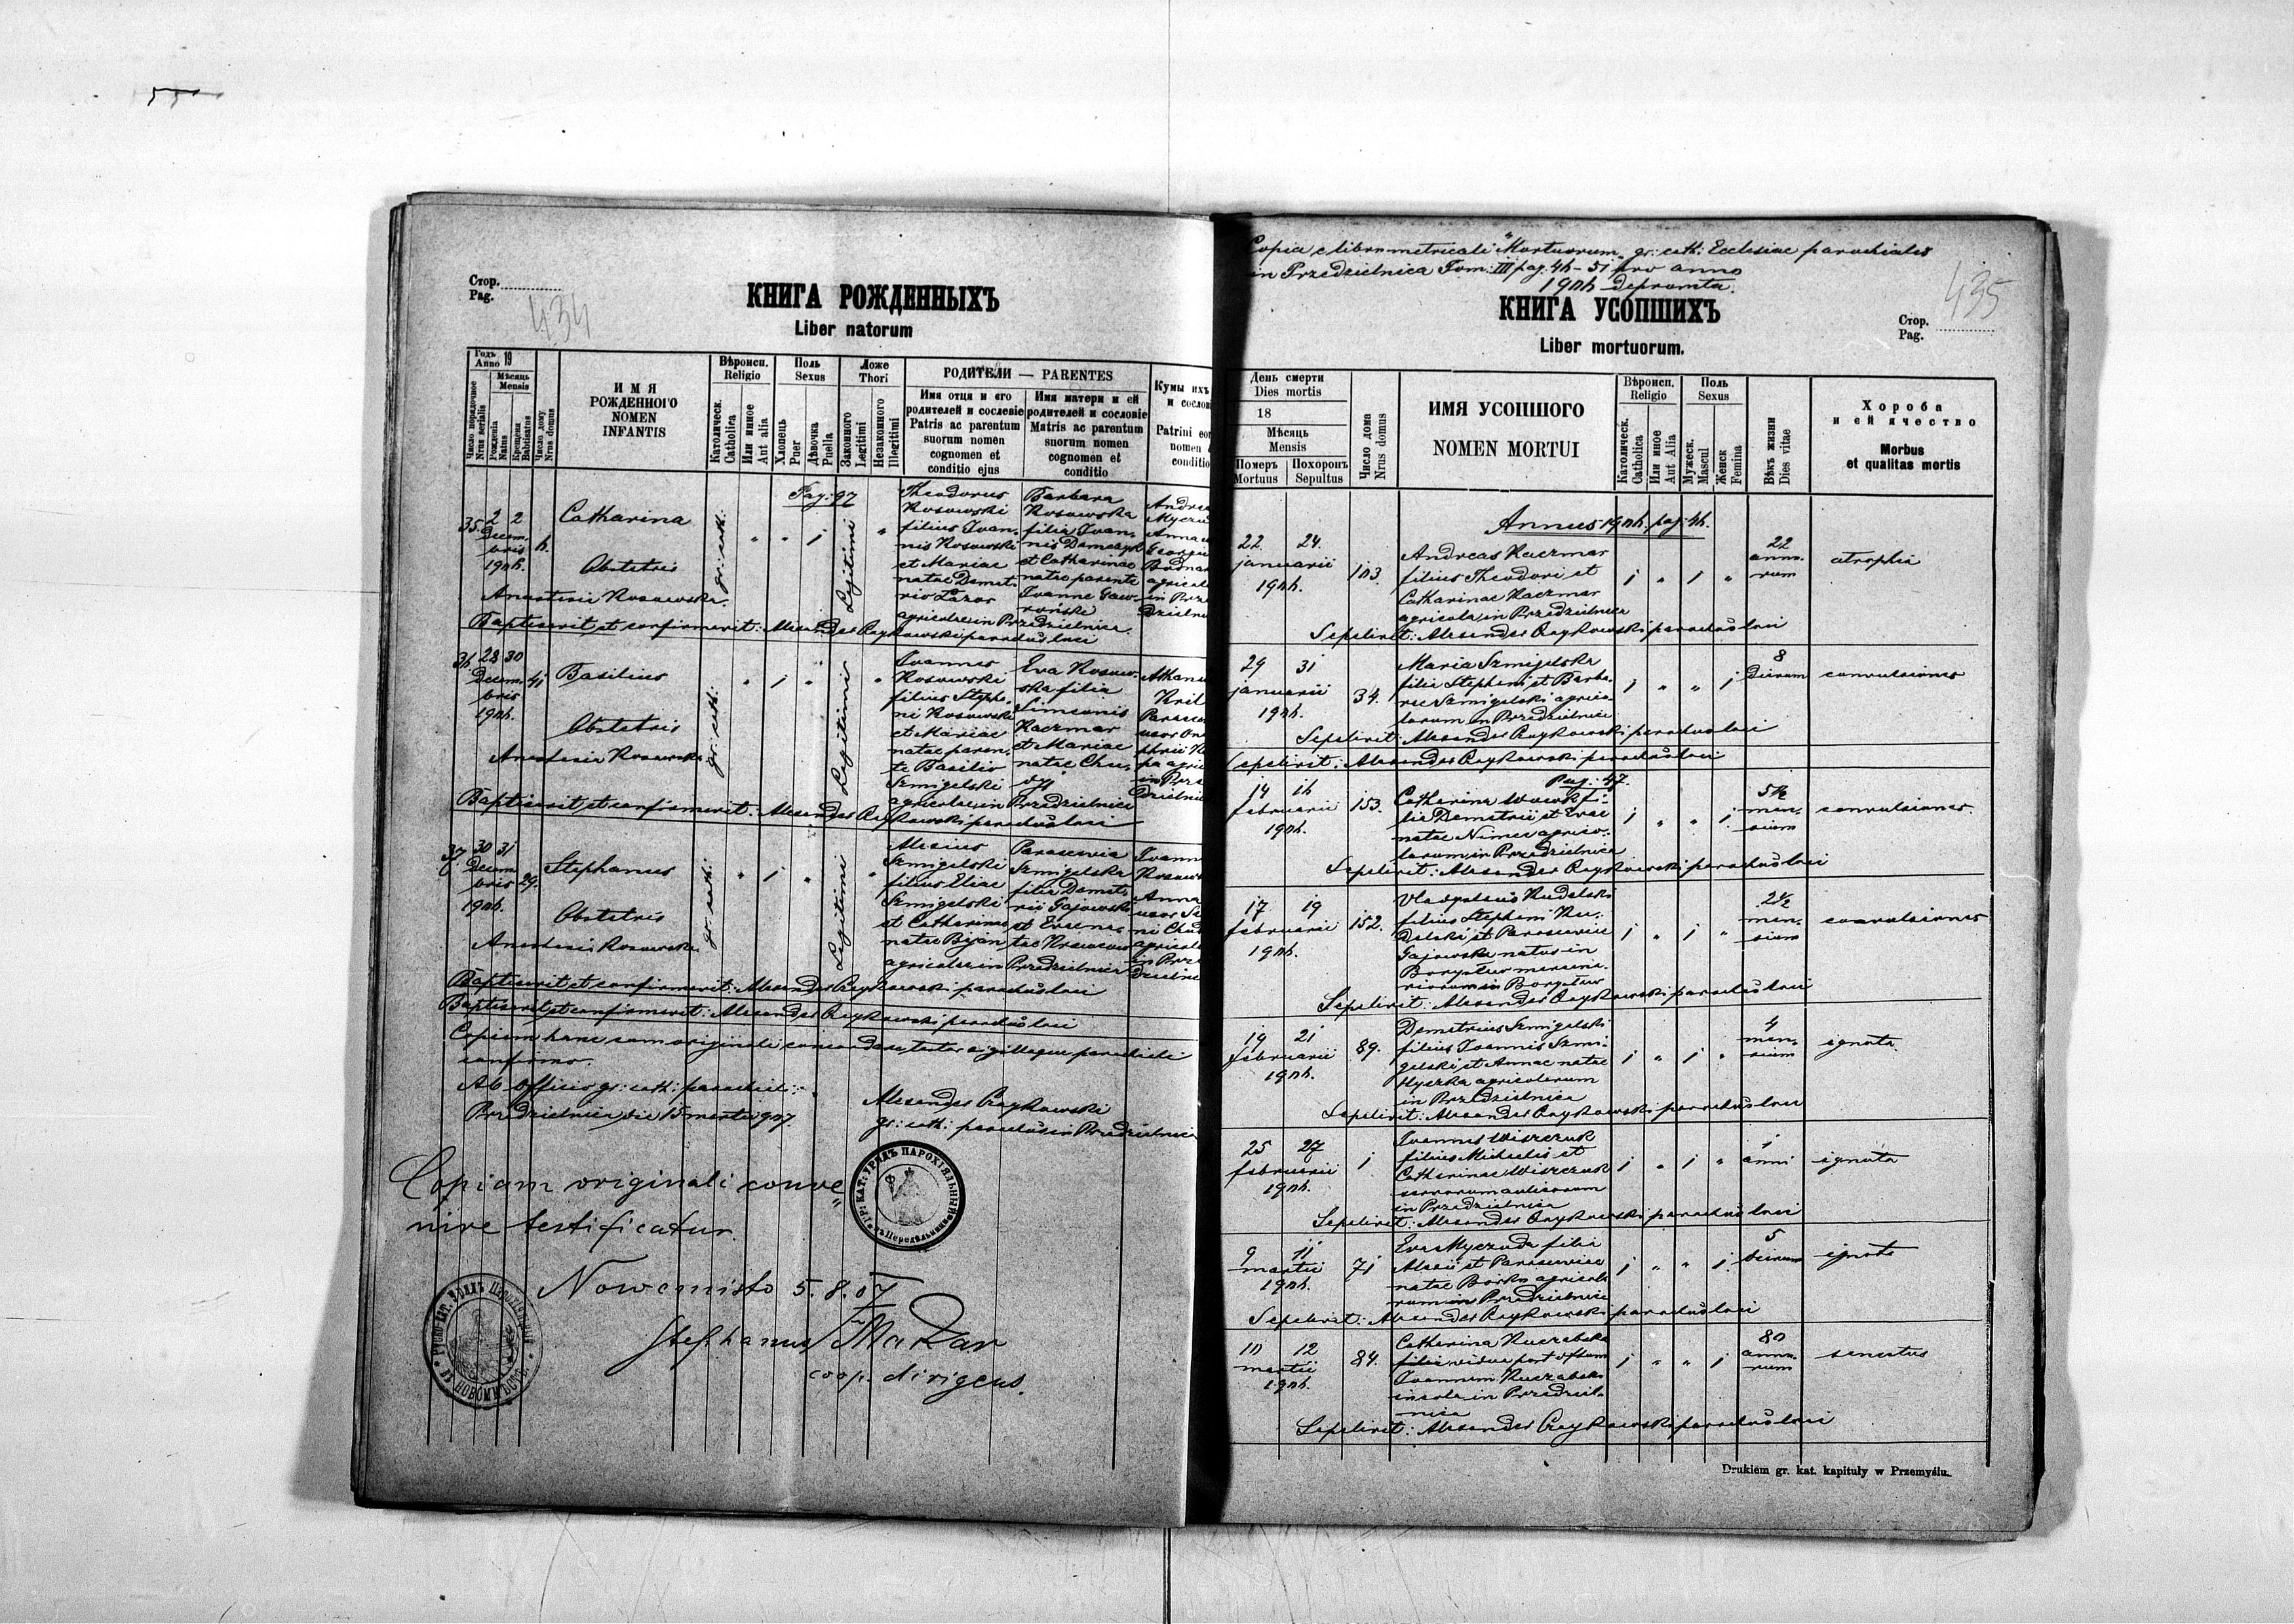 Стор.
Pag.
434
КНИГА РОЖДЕННЫХЪ
Liber natorum
Годъ
Anno 19
Мѣсяць
Mensis
Число порядочное
Nrus serialis
Рожденія
Natus
Крещенія
Babtisatus
Число дому
Nrus domus
ИМЯ
РОЖДЕННОГО
NOMEN
INFANTIS
Вѣроисп.
Religio
Католическ.
Catholica
Или инное
Aut alia
Поль
Sexus
Хлопець
Puer
Дѣвочка
Puella
Ложе
Thori
Законного
Legitimi
Незаконного
Illegitimi
РОДИТЕЛИ — PARENTES
Имя отца и его
родителей и сословіе
Patris ac parentum
suorum nomen
cognomen et
conditio ejus
Имя матери и ей
родителей и сословіе
Matris ac parentum
suorum nomen
cognomen et
conditio
Кумы ихъ
Patrini
nomen
conditio
Pag: 97
35. 2 2 Decembris 190h. h.
Catharina
Obstetrix
Anastasia Kosowska.
gr: cath:
" " 1
Legitimi
"
Theodorus
Kosowski
filius Joan-
nis Kosowski
et Mariae
natae Demet-
rio Lazor
agricolae in Przedzielnica.
Barbara
Kosowska
filia Joan-
nis Demczyk
et Catharinae
natae parente
Joanne Gaw-
roński
Baptisavit et confirmavit: Alexander Czajkowski parochus loci
36. 28 30 Decembris 190h. 41
Basilius
Obstetrix
Anastasia Kosowska
gr: cath:
" 1 "
Legitimi
"
Joannes
Kosowski
filius Stepha-
ni Kosowski
et Mariae
natae paren-
te Basilio
Szmigelski
agricolae in Przedzielnica
Eva Kosow-
ska filia
Simeonis
Kaczmar
et Mariae
natae Chu-
dyj
Baptisavit et confirmavit: Alexander Czajkowski parochus loci
37. 30 31 Decembris 190h. 29.
Stephanus
Obstetrix
Anastasia Kosowska
gr: cath:
" 1 "
Legitimi
"
Alexius
Szmigelski
filius Eliae
Szmigelski
et Catharinae
natae Bijan
agricolae in Przedzielnica
Parascevia
Szmigelska
filia Demet-
rii Gajowski
et Evae na-
tae Kosowska
Baptisavit et confirmavit: Alexander Czajkowski parochus loci
Baptisavit et confirmavit: Alexander Czajkowski parochus loci
Copiam hanc cum originali concordare testor sigilloque parochiali
confirmo.
Ab officio gr: cath: parochial:
Przedzielnica die 15 martii 907.
Alexander Czajkowski
gr: cath: parochus in Przedzielnica
ГР: КАТ: УРЯДЪ ПАРОХІЯЛЬНЫЙ
Copiam originali conve
nire testificatur.
Nowemiasto 5. 8. 07
Stephanus Mazar
coop. dirigens.
Copia e libro metricali "Mortuorum" gr: cath: Ecclesiae parochialis
in Przedzielnica Tom: III pag. 4h - 51 pro anno
190h depromta.
435
КНИГА УСОПШИХЪ
Liber mortuorum.
Стор.
Pag.
День смерти
Dies mortis
18
Мѣсяць
Mensis
Померъ
Mortuus
Похоронъ
Sepultus
Число дома
Nrus domus
ИМЯ УСОПШОГО
NOMEN MORTUI
Вѣроисп.
Religio
Католическ.
Catholica
Или инное
Aut Alia
Поль
Sexus
Мужеск.
Mascul
Женск
Femina
Вѣкъ жизни
Dies vitae
Хороба
и ей ячество
Morbus
et qualitas mortis
Annus 190h. pag: 4h.
22 24 januarii 190h. 103.
Andreas Kaczmar
filius Theodori et
Catharinae Kaczmar
agricola in Przedzielnica
1 " 1 "
22 annorum
atrophia
Sepelivit: Alexander Czajkowski parochus loci
29 31 januarii 190h. 34.
Maria Szmigelska
filia Stephani et Barba-
rae Szmigelski agrico-
larum in Przedzielnica
1 " " 1
8 dierum
convulsiones
Sepelivit: Alexander Czajkowski parochus loci
Sepelivit: Alexander Czajkowski parochus loci
Pag: 47.
14 16 februarii 190h. 153.
Catharina Wowk fi-
lia Demetrii et Evae
natae Nimec agrico-
larum in Przedzielnica
1 " " 1
5½ mensium
convulsiones
Sepelivit: Alexander Czajkowski parochus loci
17 19 februarii 190h. 152.
Vladyslaus Kudelski
filius Stephani Ku-
delski et Parasceviae
Gajowska natus in
1 " 1 "
2½ mensium
convulsiones
Sepelivit: Alexander Czajkowski parochus loci
19 21 februarii 190h. 89.
Demetrius Szmigelski
filius Joannis Szmi-
gelski et Annae natae
Hyczka agricolarum
in Przedzielnica
1 " 1 "
4 mensium
ignota.
Sepelivit: Alexander Czajkowski parochus loci
25 27 februarii 190h. 1
Joannes Wiszczuk
filius Michaelis et
Catharinae Wiszczuk
servorum aulicorum
in Przedzielnica
1 " 1 "
1 anni
ignota
Sepelivit: Alexander Czajkowski parochus loci
9 11 martii 190h. 71
Eva Myczuda filia
Alexii et Parasceviae
natae Bośko agricola-
rum in Przedzielnica
1 " " 1
5 dierum
ignota
Sepelivit: Alexander Czajkowski parochus loci
10 12 martii 190h. 84.
Catharina Kuczabska
filia vidua post defunctum
Joannem Kuczabski
incola in Przedziel-
nica
1 " " 1
80 annorum
senectus
Sepelivit: Alexander Czajkowski parochus loci
Drukiem gr. kat. kapituły w Przemyślu.